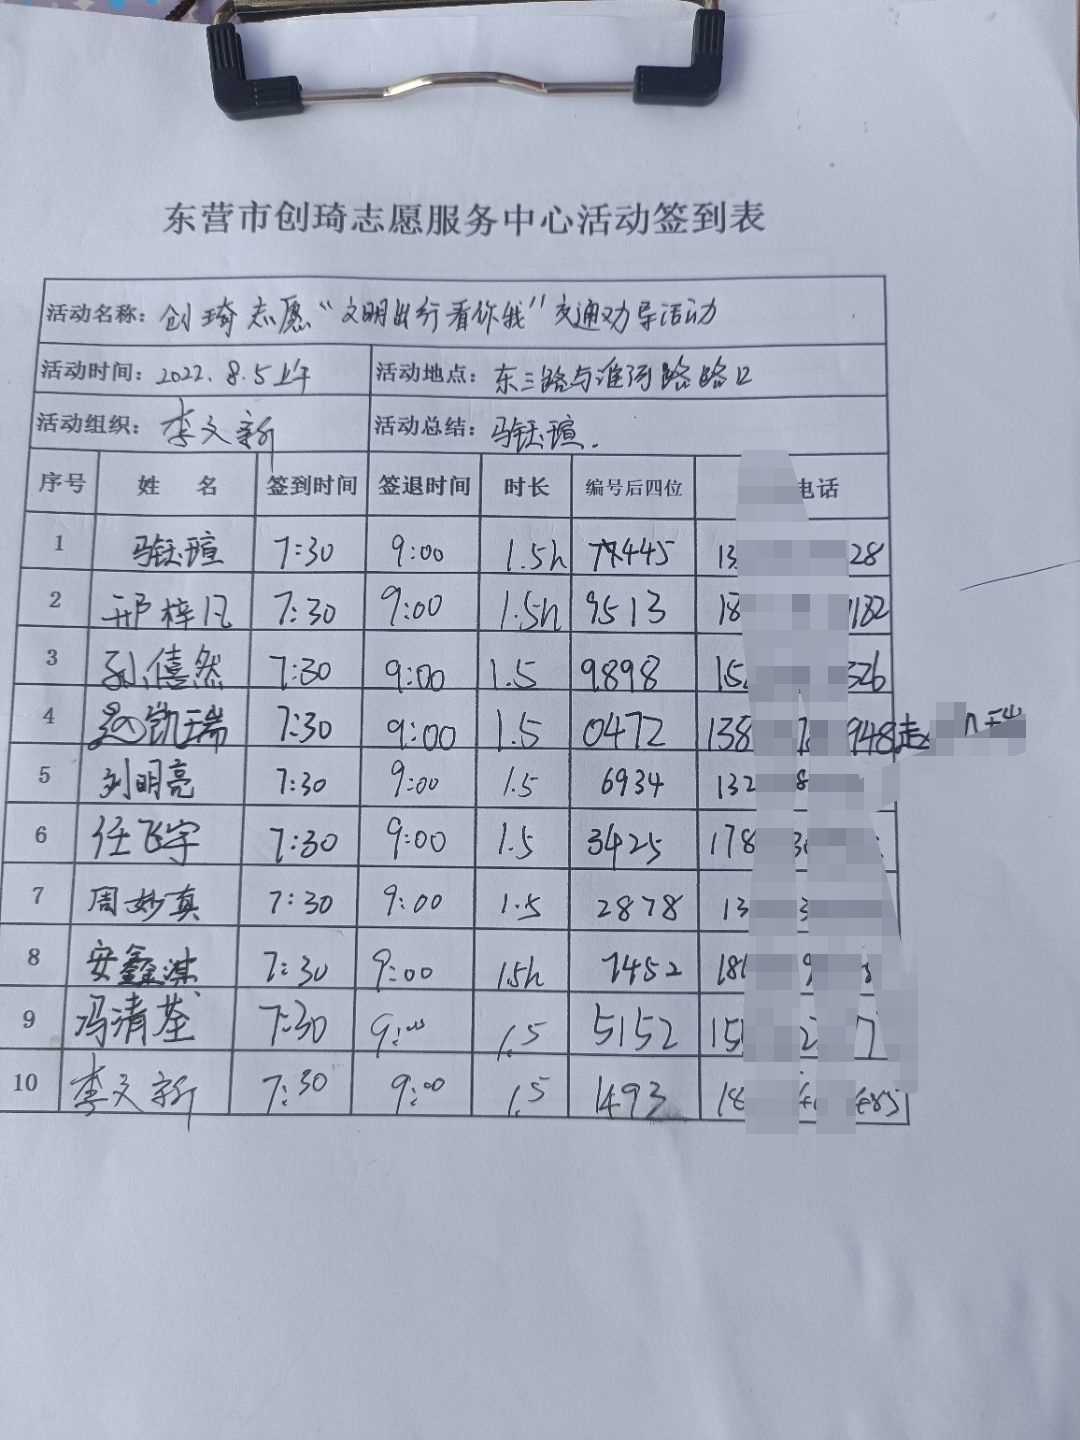 东营市创琦志愿服务中心活动签到表
活动名称：创琦志愿“文明出行看你我”交通劝导活动
活动时间：2022.8.5上午 活动地点：东三路与淮河路路口
活动组织：李文新 活动总结：马钰瑄.
序号 姓 名 签到时间 签退时间 时长 编号后四位 电话
1 马钰瑄 7:30 9:00 1.5h 7445 13 28
2 邢梓凡 7:30 9:00 1.5h 9513 18 182
3 孙僖然 7:30 9:00 1.5 9898 15 326
4 凯瑞 7:30 9:00 1.5 0472 138 948 赵
5 刘明亮 7:30 9:00 1.5 6934 132 8
6 任飞宇 7:30 9:00 1.5 3425 178
7 周妙真 7:30 9:00 1.5 2878 13
8 安鑫淇 7:30 9:00 1.5h 7452 18
9 冯清荃 7:30 9:00 1.5 5152 15 7
10 李文新 7:30 9:00 1.5 1493 18